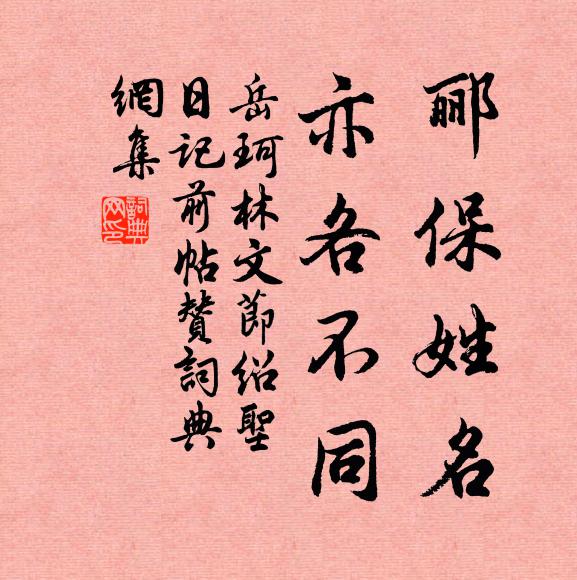 郦保姓名
亦各不同
岳珂林文節绍聖
日记前帖贊詞典
網集
詞典
网印